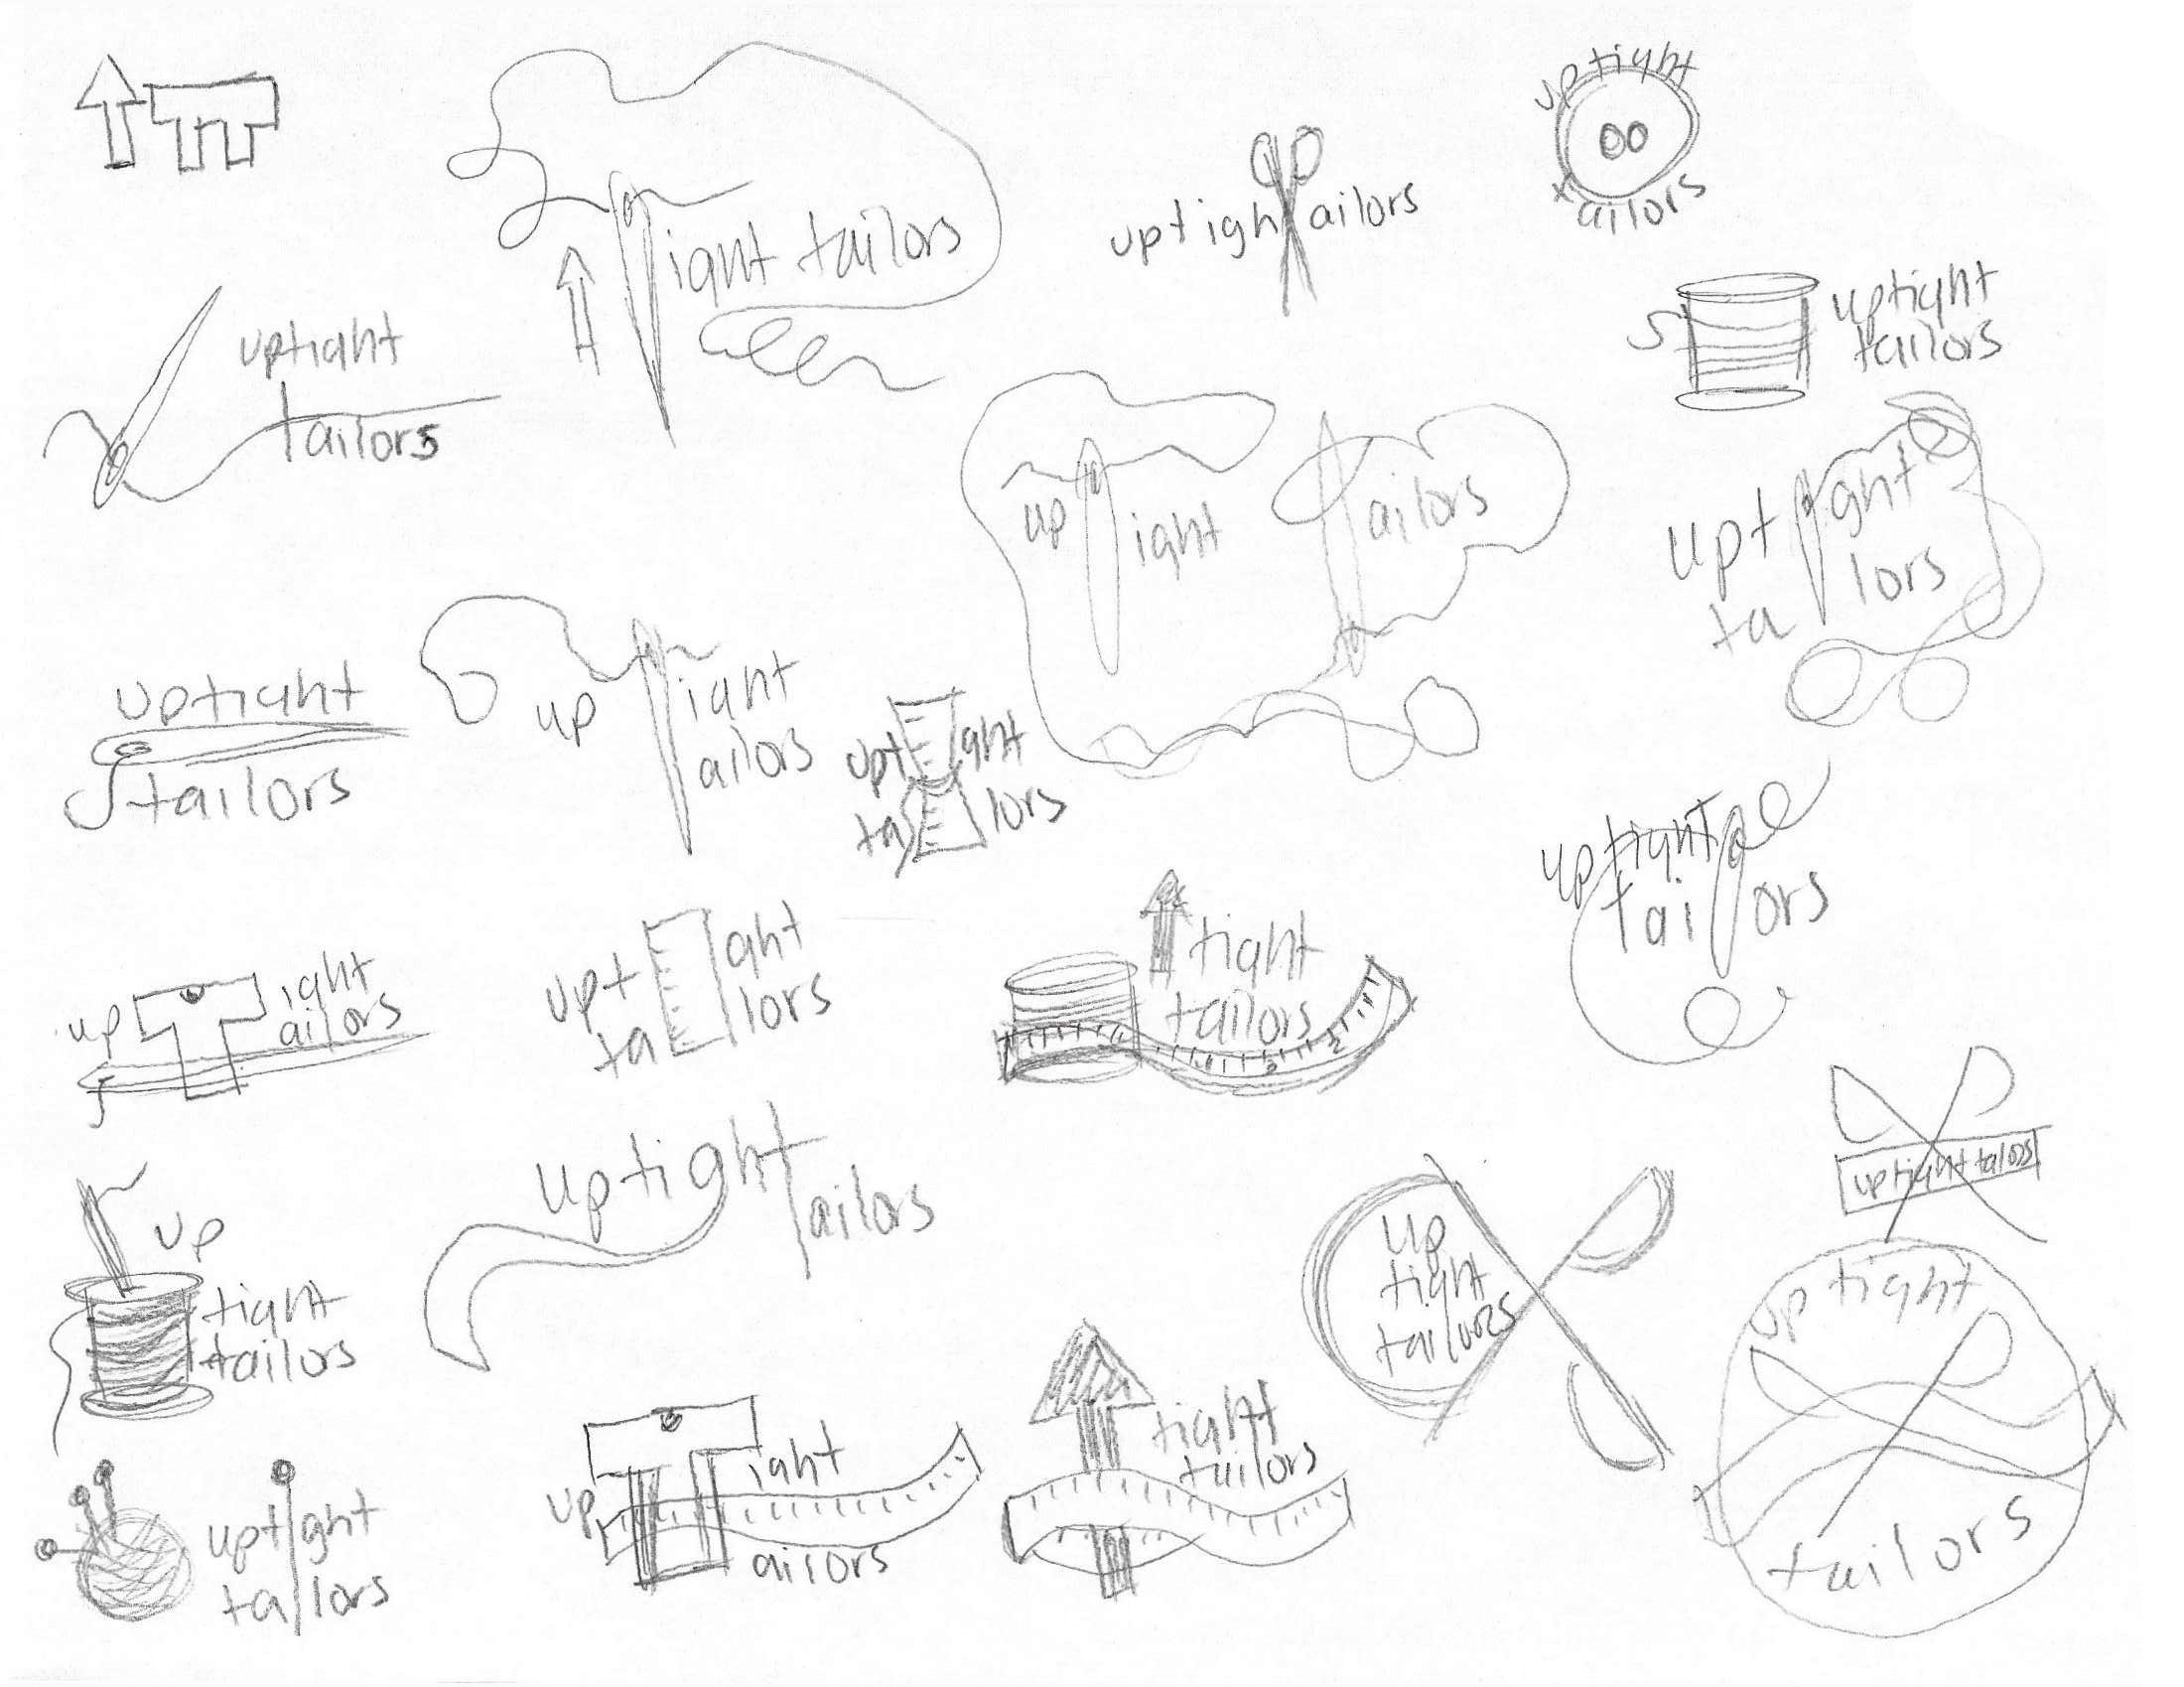 TT
ight tailors
uptigh ailors
uptight
tailors
uptight
tailors
uptight
tailors
up ight ailors
upt ght
ta lors
uptight
tailors
up ight
ailors
upt ght
ta lors
uptight
tai ors
up T ight
ailors
upt ght
ta lors
tight
tailors
uptight tailors
up
tight
tailors
uptight
tailors
up
tight
tailors
uptight
tailors
uptight
tailors
up T ight
ailors
tight
tailors